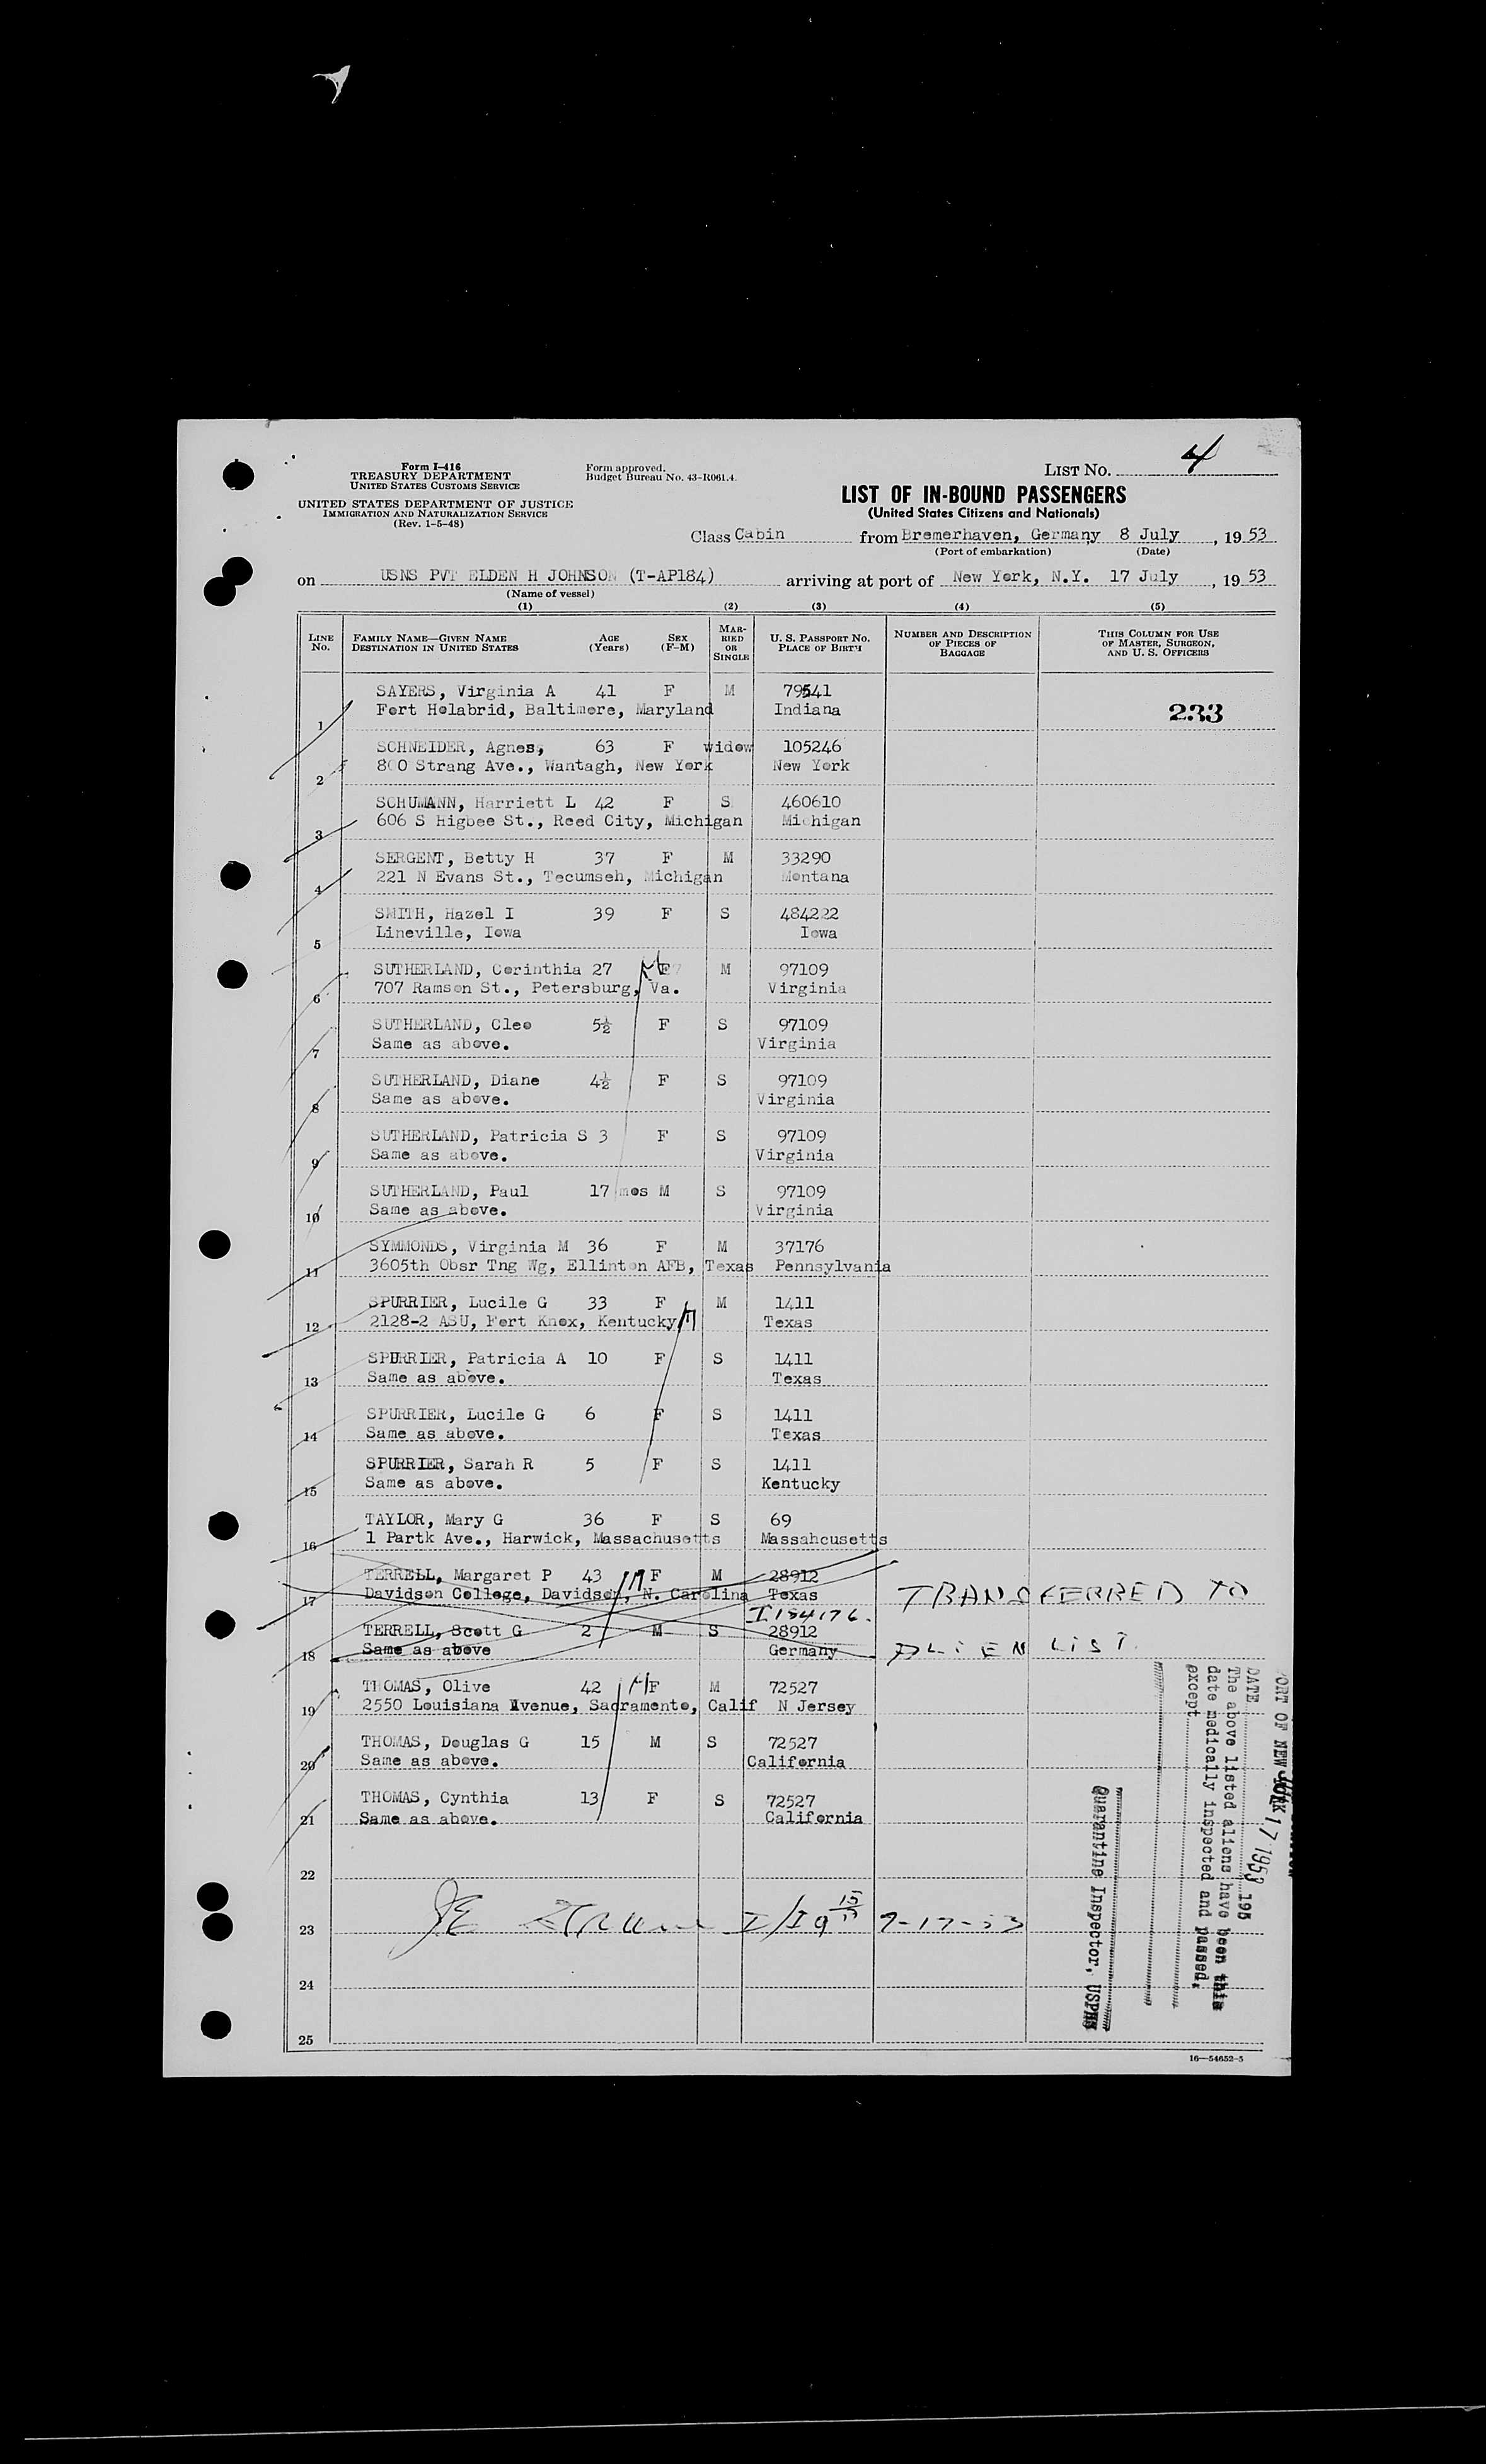 4
Form I-416
TREASURY DEPARTMENT
UNITED STATES CUSTOMS SERVICE
UNITED STATES DEPARTMENT OF JUSTICE
IMMIGRATION AND NATURALIZATION SERVICE
(Rev. 1-5-48)
Form approved.
Budget Bureau No. 43-R061.4.
LIST NO.
LIST OF IN-BOUND PASSENGERS
(United States Citizens and Nationals)
Class Cabin from Bremerhaven, Germany 8 July, 19 53
(Port of embarkation) (Date)
on USNS PVT ELDEN H JOHNSON (T-AP184) arriving at port of New York, N.Y. 17 July, 19 53
(Name of vessel)
(1) (2) (3) (4) (5)
LINE NO. FAMILY NAME—GIVEN NAME DESTINATION IN UNITED STATES AGE (Years) SEX (F-M) MARRIED OR SINGLE U. S. PASSPORT NO. PLACE OF BIRTH NUMBER AND DESCRIPTION OF PIECES OF BAGGAGE THIS COLUMN FOR USE OF MASTER, SURGEON, AND U. S. OFFICERS
SAYERS, Virginia A 41 F M 79541
1 Fort Holabrid, Baltimore, Maryland Indiana 233
SCHNEIDER, Agnes, 63 F widow 105246
2 800 Strang Ave., Wantagh, New York New York
SCHUMANN, Harriett L 42 F S 460610
3 606 S Higbee St., Reed City, Michigan Michigan
SERGENT, Betty H 37 F M 33290
4 221 N Evans St., Tecumseh, Michigan Montana
SMITH, Hazel I 39 F S 484222
5 Lineville, Iowa Iowa
SUTHERLAND, Corinthia 27 F M 97109
6 707 Ramson St., Petersburg, Va. Virginia
SUTHERLAND, Cleo 5½ F S 97109
7 Same as above. Virginia
SUTHERLAND, Diane 4½ F S 97109
8 Same as above. Virginia
SUTHERLAND, Patricia S 3 F S 97109
9 Same as above. Virginia
SUTHERLAND, Paul 17 mos M S 97109
10 Same as above. Virginia
SYMMONDS, Virginia M 36 F M 37176
11 3605th Obsr Tng Wg, Ellinton AFB, Texas Pennsylvania
SPURRIER, Lucile G 33 F M 1411
12 2128-2 ASU, Fort Knox, Kentucky Texas
SPURRIER, Patricia A 10 F S 1411
13 Same as above. Texas
SPURRIER, Lucile G 6 F S 1411
14 Same as above. Texas
SPURRIER, Sarah R 5 F S 1411
15 Same as above. Kentucky
TAYLOR, Mary G 36 F S 69
16 1 Partk Ave., Harwick, Massachusetts Massahcusetts
TERRELL, Margaret P 43 M F M 28912
17 Davidson College, Davidson, N. Carolina Texas TRANSFERRED TO
I184176.
TERRELL, Scott G 2 M S 28912
18 Same as above Germany ALIEN LIST
THOMAS, Olive 42 F M 72527
19 2550 Louisiana Avenue, Sacramento, Calif N Jersey
THOMAS, Douglas G 15 M S 72527
20 Same as above. California
THOMAS, Cynthia 13 F S 72527
21 Same as above. California
22
23 7-17-53
24
25
PORT OF NEW YORK
DATE 17 1953 195
The above listed aliens have been this
date medically inspected and passed,
except
Quarantine Inspector, USPHS
16—54652-5